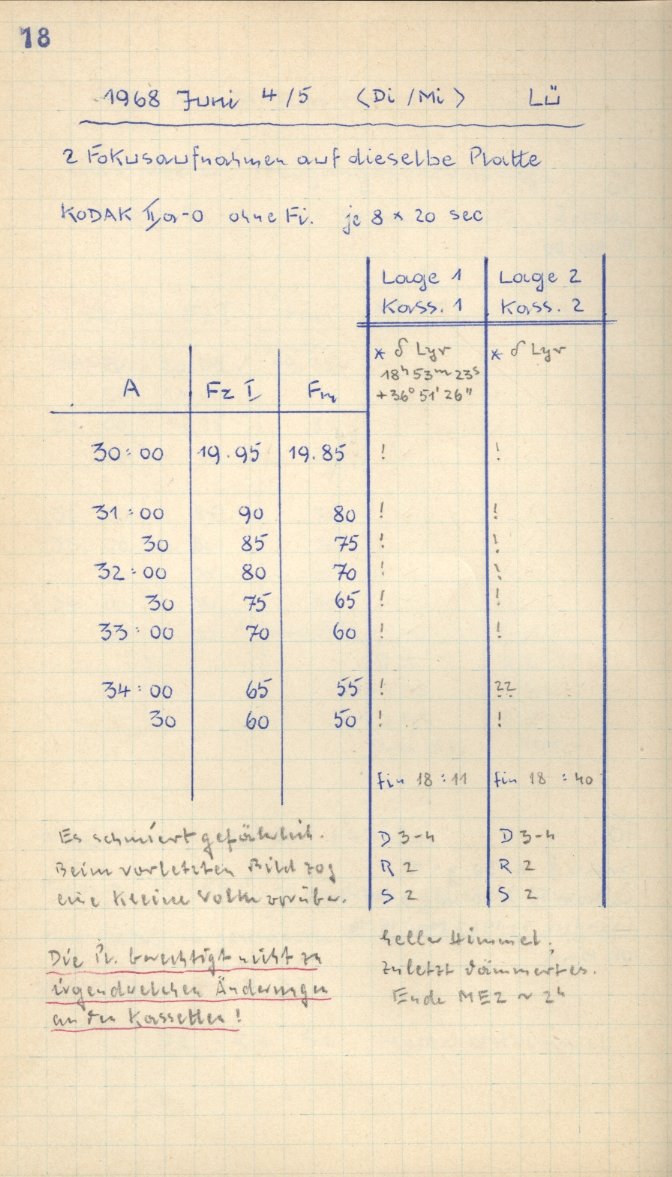 18
1968 Juni 4/5 <Di/Mi> Lü
2 Fokusaufnahmen auf dieselbe Platte
KODAK IIa-O ohne Fi. je 8 × 20 sec
Lage 1 Lage 2
Kass. 1 Kass. 2
* δ Lyr * δ Lyr
18h 53m 23s
+36° 51' 26"
A Fz I
30:00 19.95 19.85 ! !
31:00 90 80 ! !
30 85 75 ! !
32:00 80 70 ! !
30 75 65 ! !
33:00 70 60 ! !
34:00 65 55 ! !!
30 60 50 ! !
fin 18:11 fin 18:40
Es schmiert gefährlich. D 3-4 D 3-4
Beim vorletzten Bild zog R 2 R 2
eine kleine Wolke vorüber. S 2 S 2
heller Himmel;
Die Pl. berechtigt nicht zu zuletzt dämmert es.
irgendwelchen Änderungen Ende MEZ ~ 2h
an den Kassetten!